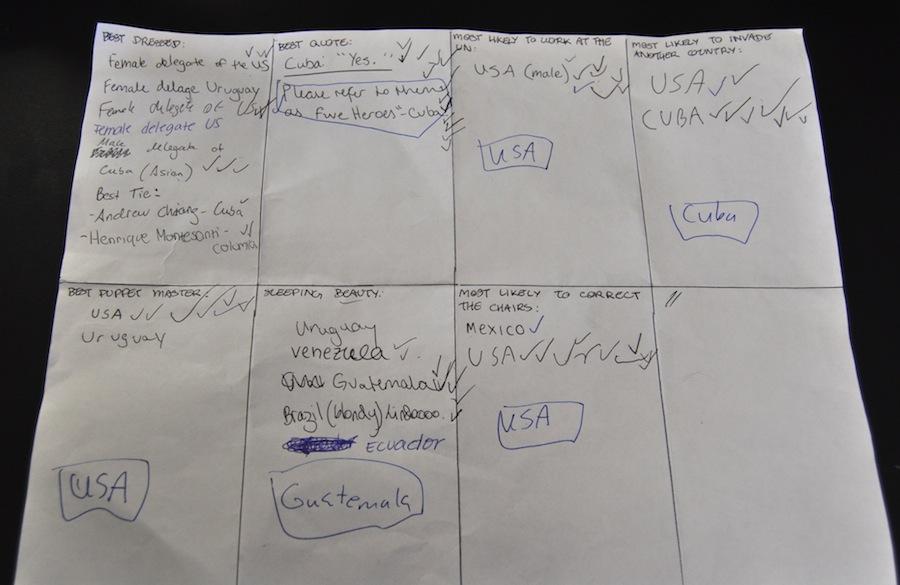 BEST DRESSED:
Female delegate of the US
Female delage Uruguay
Female delegate of US
Female delegate US
Male delegate of
Cuba (Asian)
Best Tie:
-Andrew Chiang - Cuba
-Henrique Montesanti -
Columbia
BEST QUOTE:
Cuba: "Yes."
Please refer to them
as Five Heroes" - Cuba
MOST LIKELY TO WORK AT THE
UN:
USA (male)
USA
MOST LIKELY TO INVADE
ANOTHER COUNTRY:
USA
CUBA
Cuba
BEST PUPPET MASTER:
USA
Uruguay
USA
SLEEPING BEAUTY:
Uruguay
Venezuela
Guatemala
Brazil (blondy)
ECUADOR
Guatemala
MOST LIKELY TO CORRECT
THE CHAIRS:
MEXICO
USA
USA